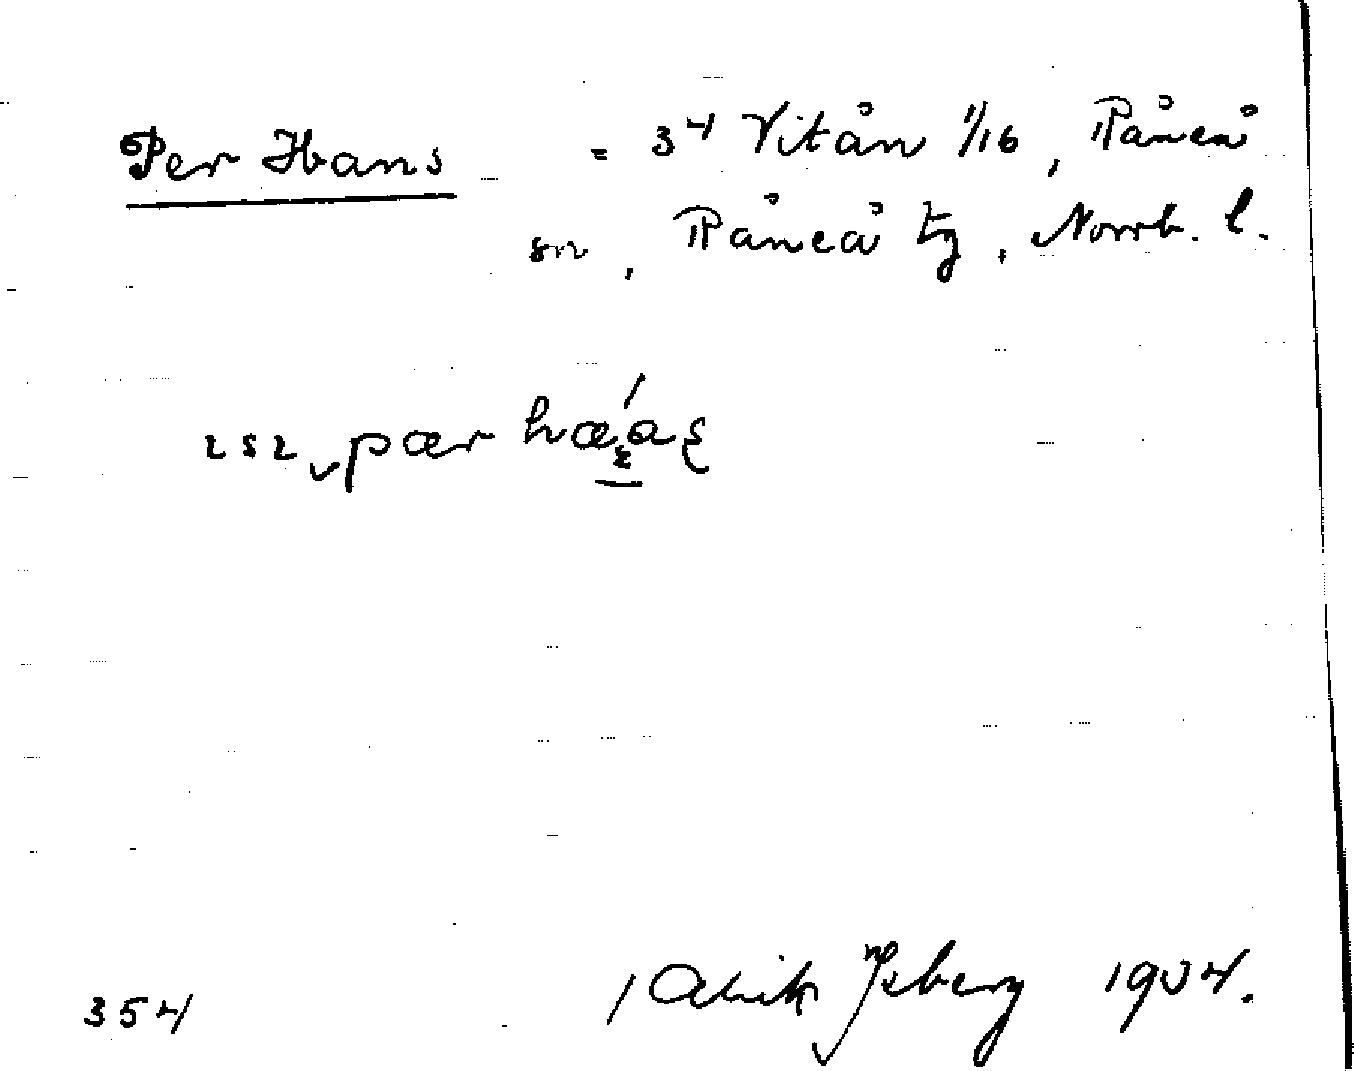 Per Hans = 34 Vitån 1/16, Råneå
sn, Råneå tg, Norrb. l.
252, pær
354 Isberg 1904.